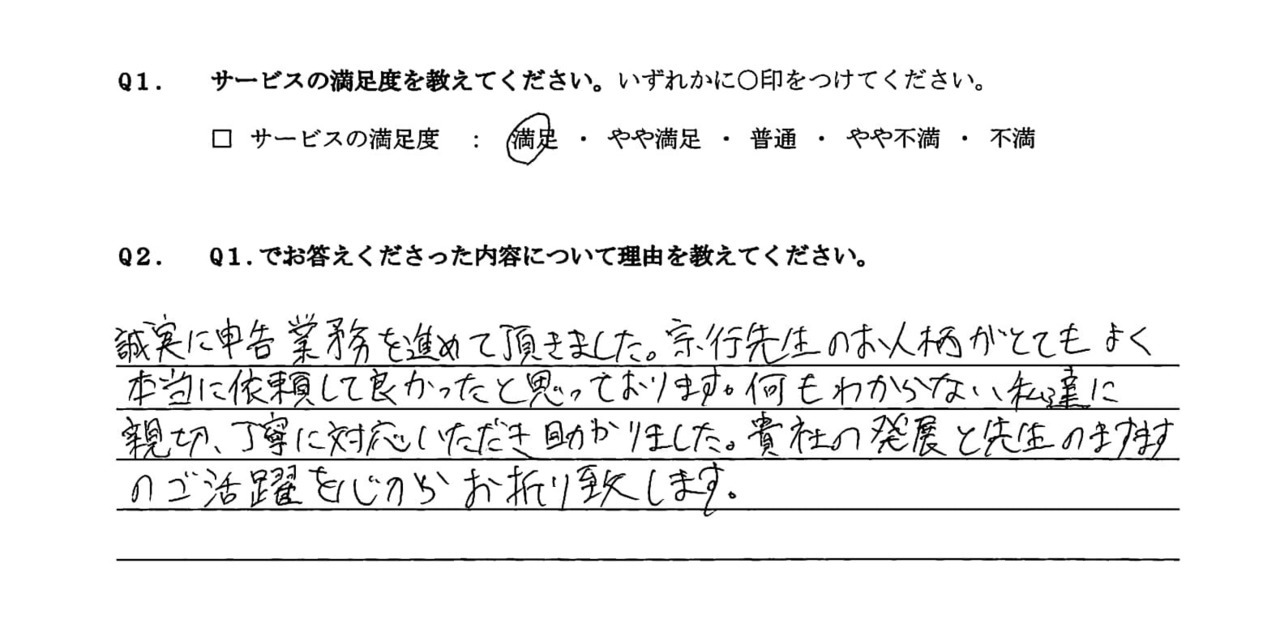 Q1. サービスの満足度を教えてください。いずれかに〇印をつけてください。
□ サービスの満足度 : 満足 ・ やや満足 ・ 普通 ・ やや不満 ・ 不満
Q2. Q1.でお答えくださった内容について理由を教えてください。
誠実に申告業務を進めて頂きました。宗行先生のお人柄がとてもよく
本当に依頼して良かったと思っております。何もわからない私達に
親切、丁寧に対応いただき助かりました。貴社の発展と先生のますます
のご活躍を心からお祈り致します。